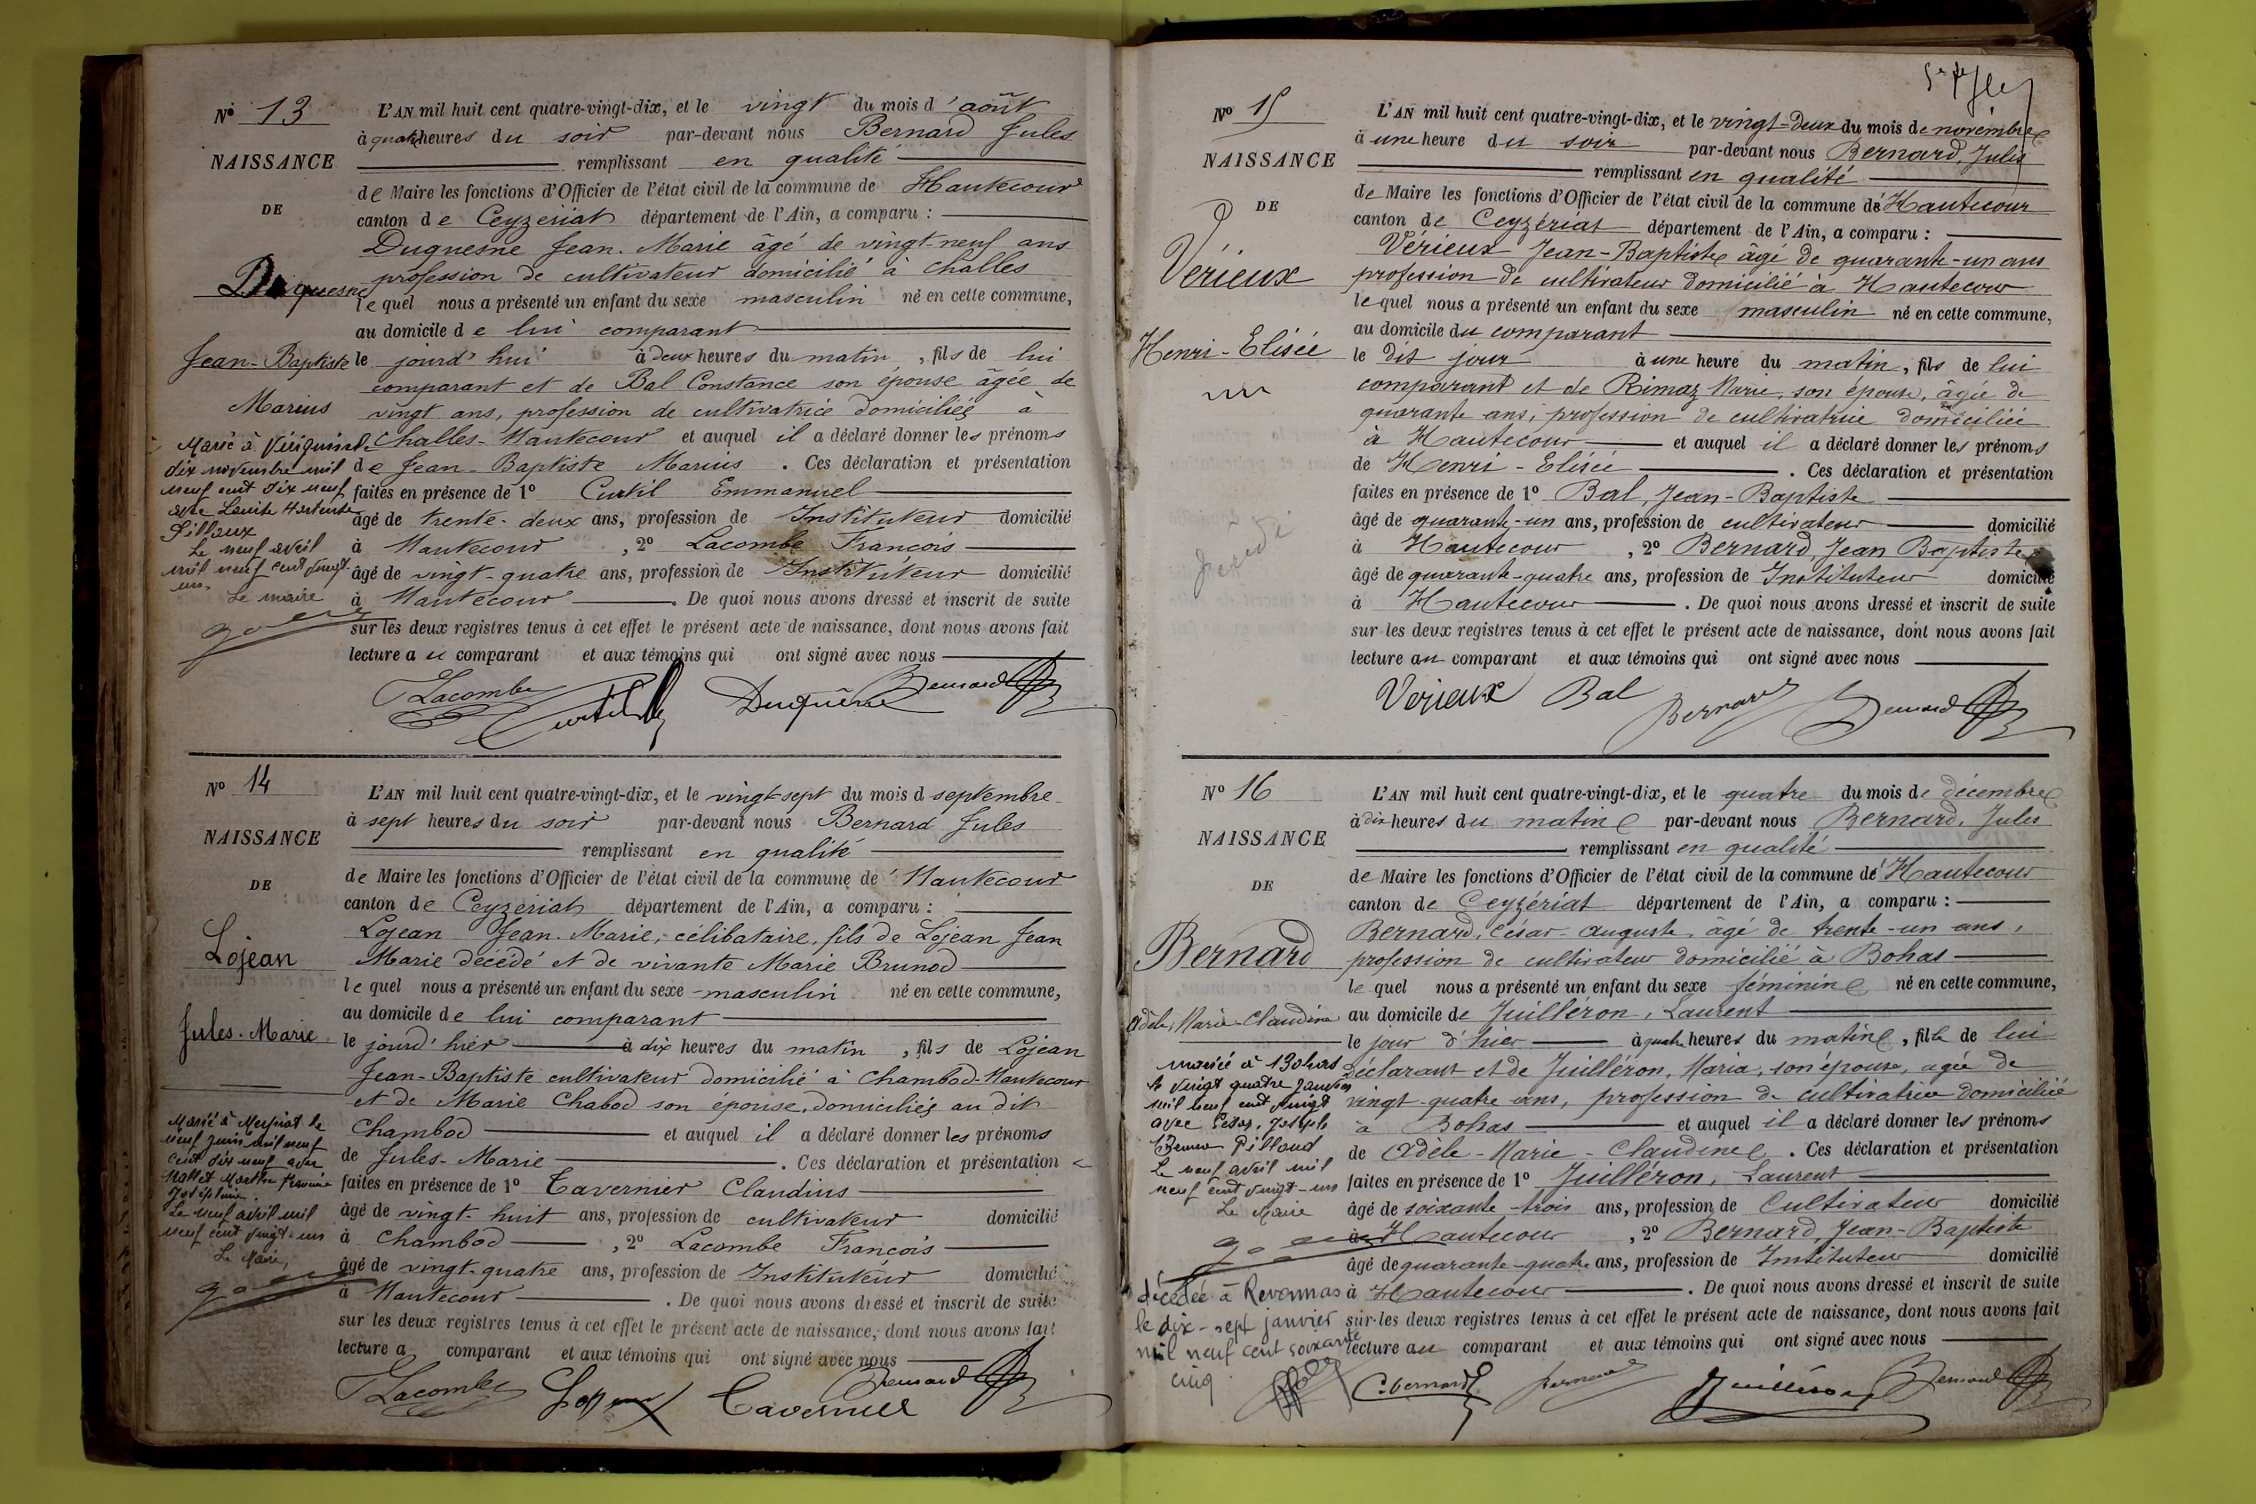 Nº 13
NAISSANCE
DE
Duquesne
Jean-Baptiste
Marius
Marié à
dix novembre mil
neuf cent dix neuf
avec Louise
Le neuf avril
mil neuf cent vingt
un.
Le maire
L'AN mil huit cent quatre-vingt-dix, et le vingt du mois d'août
à quatre heures du soir par-devant nous Bernard Jules
remplissant en qualité
de Maire les fonctions d'Officier de l'état civil de la commune de Hautecour
canton de Ceyzeriat département de l'Ain, a comparu :
Duquesne Jean-Marie âgé de vingt-neuf ans
profession de cultivateur domicilié à Challes
lequel nous a présenté un enfant du sexe masculin né en cette commune,
au domicile de lui comparant
le jourd'hui à deux heures du matin, fils de lui
comparant et de Bal Constance son épouse âgée de
vingt ans, profession de cultivatrice domiciliée à
Challes-Hautecour et auquel il a déclaré donner les prénoms
de Jean-Baptiste Marius. Ces déclaration et présentation
faites en présence de 1º Curtil Emmanuel
âgé de trente-deux ans, profession de Instituteur domicilié
à Hautecour, 2º Lacombe François
âgé de vingt-quatre ans, profession de Instituteur domicilié
à Hautecour. De quoi nous avons dressé et inscrit de suite
sur les deux registres tenus à cet effet le présent acte de naissance, dont nous avons fait
lecture au comparant et aux témoins qui ont signé avec nous
Lacombe Curtil Duquêne Bernard
Nº 14
NAISSANCE
DE
Lojean
Jules-Marie
Marié à Meyriat le
neuf juin mil neuf
cent dix neuf avec
Joséphine.
Le neuf avril mil
neuf cent vingt-un
Le Maire,
L'AN mil huit cent quatre-vingt-dix, et le vingt-sept du mois d septembre
à sept heures du soir par-devant nous Bernard Jules
remplissant en qualité
de Maire les fonctions d'Officier de l'état civil de la commune de Hautecour
canton de Ceyzeriat département de l'Ain, a comparu :
Lojean Jean-Marie, célibataire, fils de Lojean Jean
Marie décédé et de vivante Marie Brunod
lequel nous a présenté un enfant du sexe masculin né en cette commune,
au domicile de lui comparant
le jourd'hier à dix heures du matin, fils de Lojean
Jean-Baptiste cultivateur domicilié à Chambod-Hautecour
et de Marie Chabod son épouse, domiciliés au dit
Chambod et auquel il a déclaré donner les prénoms
de Jules-Marie. Ces déclaration et présentation
faites en présence de 1º Tavernier Claudius
âgé de vingt-huit ans, profession de cultivateur domicilié
à Chambod, 2º Lacombe François
âgé de vingt-quatre ans, profession de Instituteur domicilié
à Hautecour. De quoi nous avons dressé et inscrit de suite
sur les deux registres tenus à cet effet le présent acte de naissance, dont nous avons fait
lecture a comparant et aux témoins qui ont signé avec nous
Lacombe Tavernier Bernard
Nº 15
NAISSANCE
DE
Vérieux
Henri-Elisée
L'AN mil huit cent quatre-vingt-dix, et le vingt-deux du mois de novembre
à une heure du soir par-devant nous Bernard, Jules
remplissant en qualité
de Maire les fonctions d'Officier de l'état civil de la commune de Hautecour
canton de Ceyzériat département de l'Ain, a comparu :
Vérieux Jean-Baptiste âgé de quarante-un ans
profession de cultivateur domicilié à Hautecour
lequel nous a présenté un enfant du sexe masculin né en cette commune,
au domicile du comparant
le dit jour à une heure du matin, fils de lui
comparant et de Rimaz Marie, son épouse, âgée de
quarante ans, profession de cultivatrice domiciliée
à Hautecour et auquel il a déclaré donner les prénoms
de Henri-Elisée. Ces déclaration et présentation
faites en présence de 1º Bal, Jean-Baptiste
âgé de quarante-un ans, profession de cultivateur domicilié
à Hautecour, 2º Bernard, Jean Baptiste
âgé de quarante-quatre ans, profession de Instituteur domicilié
à Hautecour. De quoi nous avons dressé et inscrit de suite
sur les deux registres tenus à cet effet le présent acte de naissance, dont nous avons fait
lecture au comparant et aux témoins qui ont signé avec nous
Verieux Bal Bernard Bernard
Nº 16
NAISSANCE
DE
Bernard
Adèle, Marie-Claudine
mariée à Bohas
le vingt quatre janvier
mil neuf cent vingt
avec César, Joseph
Pilland
Le neuf avril mil
neuf cent vingt-un
Le Maire
décédée à Revonnas
le dix-sept janvier
mil neuf cent soixante
cinq
L'AN mil huit cent quatre-vingt-dix, et le quatre du mois de décembre
à dix heures du matin par-devant nous Bernard, Jules
remplissant en qualité
de Maire les fonctions d'Officier de l'état civil de la commune de Hautecour
canton de Ceyzériat département de l'Ain, a comparu :
Bernard, César-Auguste, âgé de trente-un ans,
profession de cultivateur domicilié à Bohas
lequel nous a présenté un enfant du sexe féminin né en cette commune,
au domicile de Juilléron, Laurent
le jour d'hier à quatre heures du matin, fille de lui
déclarant et de Juilléron, Maria, son épouse, agée de
vingt-quatre ans, profession de cultivatrice domiciliée
à Bohas et auquel il a déclaré donner les prénoms
de Adèle-Marie-Claudine. Ces déclaration et présentation
faites en présence de 1º Juilléron, Laurent
âgé de soixante-trois ans, profession de Cultivateur domicilié
à Hautecour, 2º Bernard, Jean-Baptiste
âgé de quarante-quatre ans, profession de Instituteur domicilié
à Hautecour. De quoi nous avons dressé et inscrit de suite
sur les deux registres tenus à cet effet le présent acte de naissance, dont nous avons fait
lecture au comparant et aux témoins qui ont signé avec nous
C. Bernard Bernard Juilléron Bernard